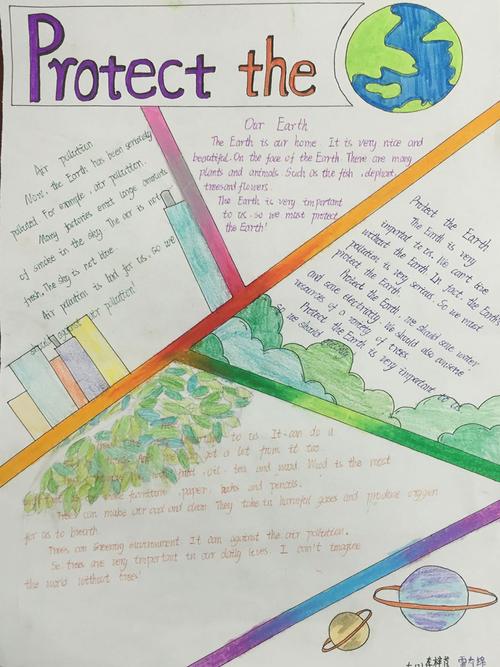 Protect the
Our Earth
The Earth is our home. It is very nice and
beautiful. On the face of the Earth There are many
plants and animals. Such as the fish, elephant,
trees and flowers.
The Earth is very important
to us. so we must protect
the Earth!
Air pollution
Now, the Earth has been seriously
polluted. For example, air pollution.
Many factories emit large amounts
of smoke in the sky. The air is not
fresh. The sky is not blue.
Air pollution is bad for us. so we
against air pollution!
Protect the Earth
The Earth is very
important to us. We can't live
without the Earth. In fact, the Earth's
pollution is very serious. So we must
protect the Earth.
Protect the Earth, we should save water
and save electricity. We should also conserve
resources of a variety of trees.
Protect the Earth is very important to us
So we should
to us. It can do a
get a lot from it too.
oil, tea and wood. Wood is the most
furniture, paper, books and pencils.
Trees can make our cool and clean They take in harmful gases and produce oxygen
for us to breath.
Trees can Greening environment. It can against the air pollution.
So trees are very important in our daily lives. I can't imagine
the world without trees!